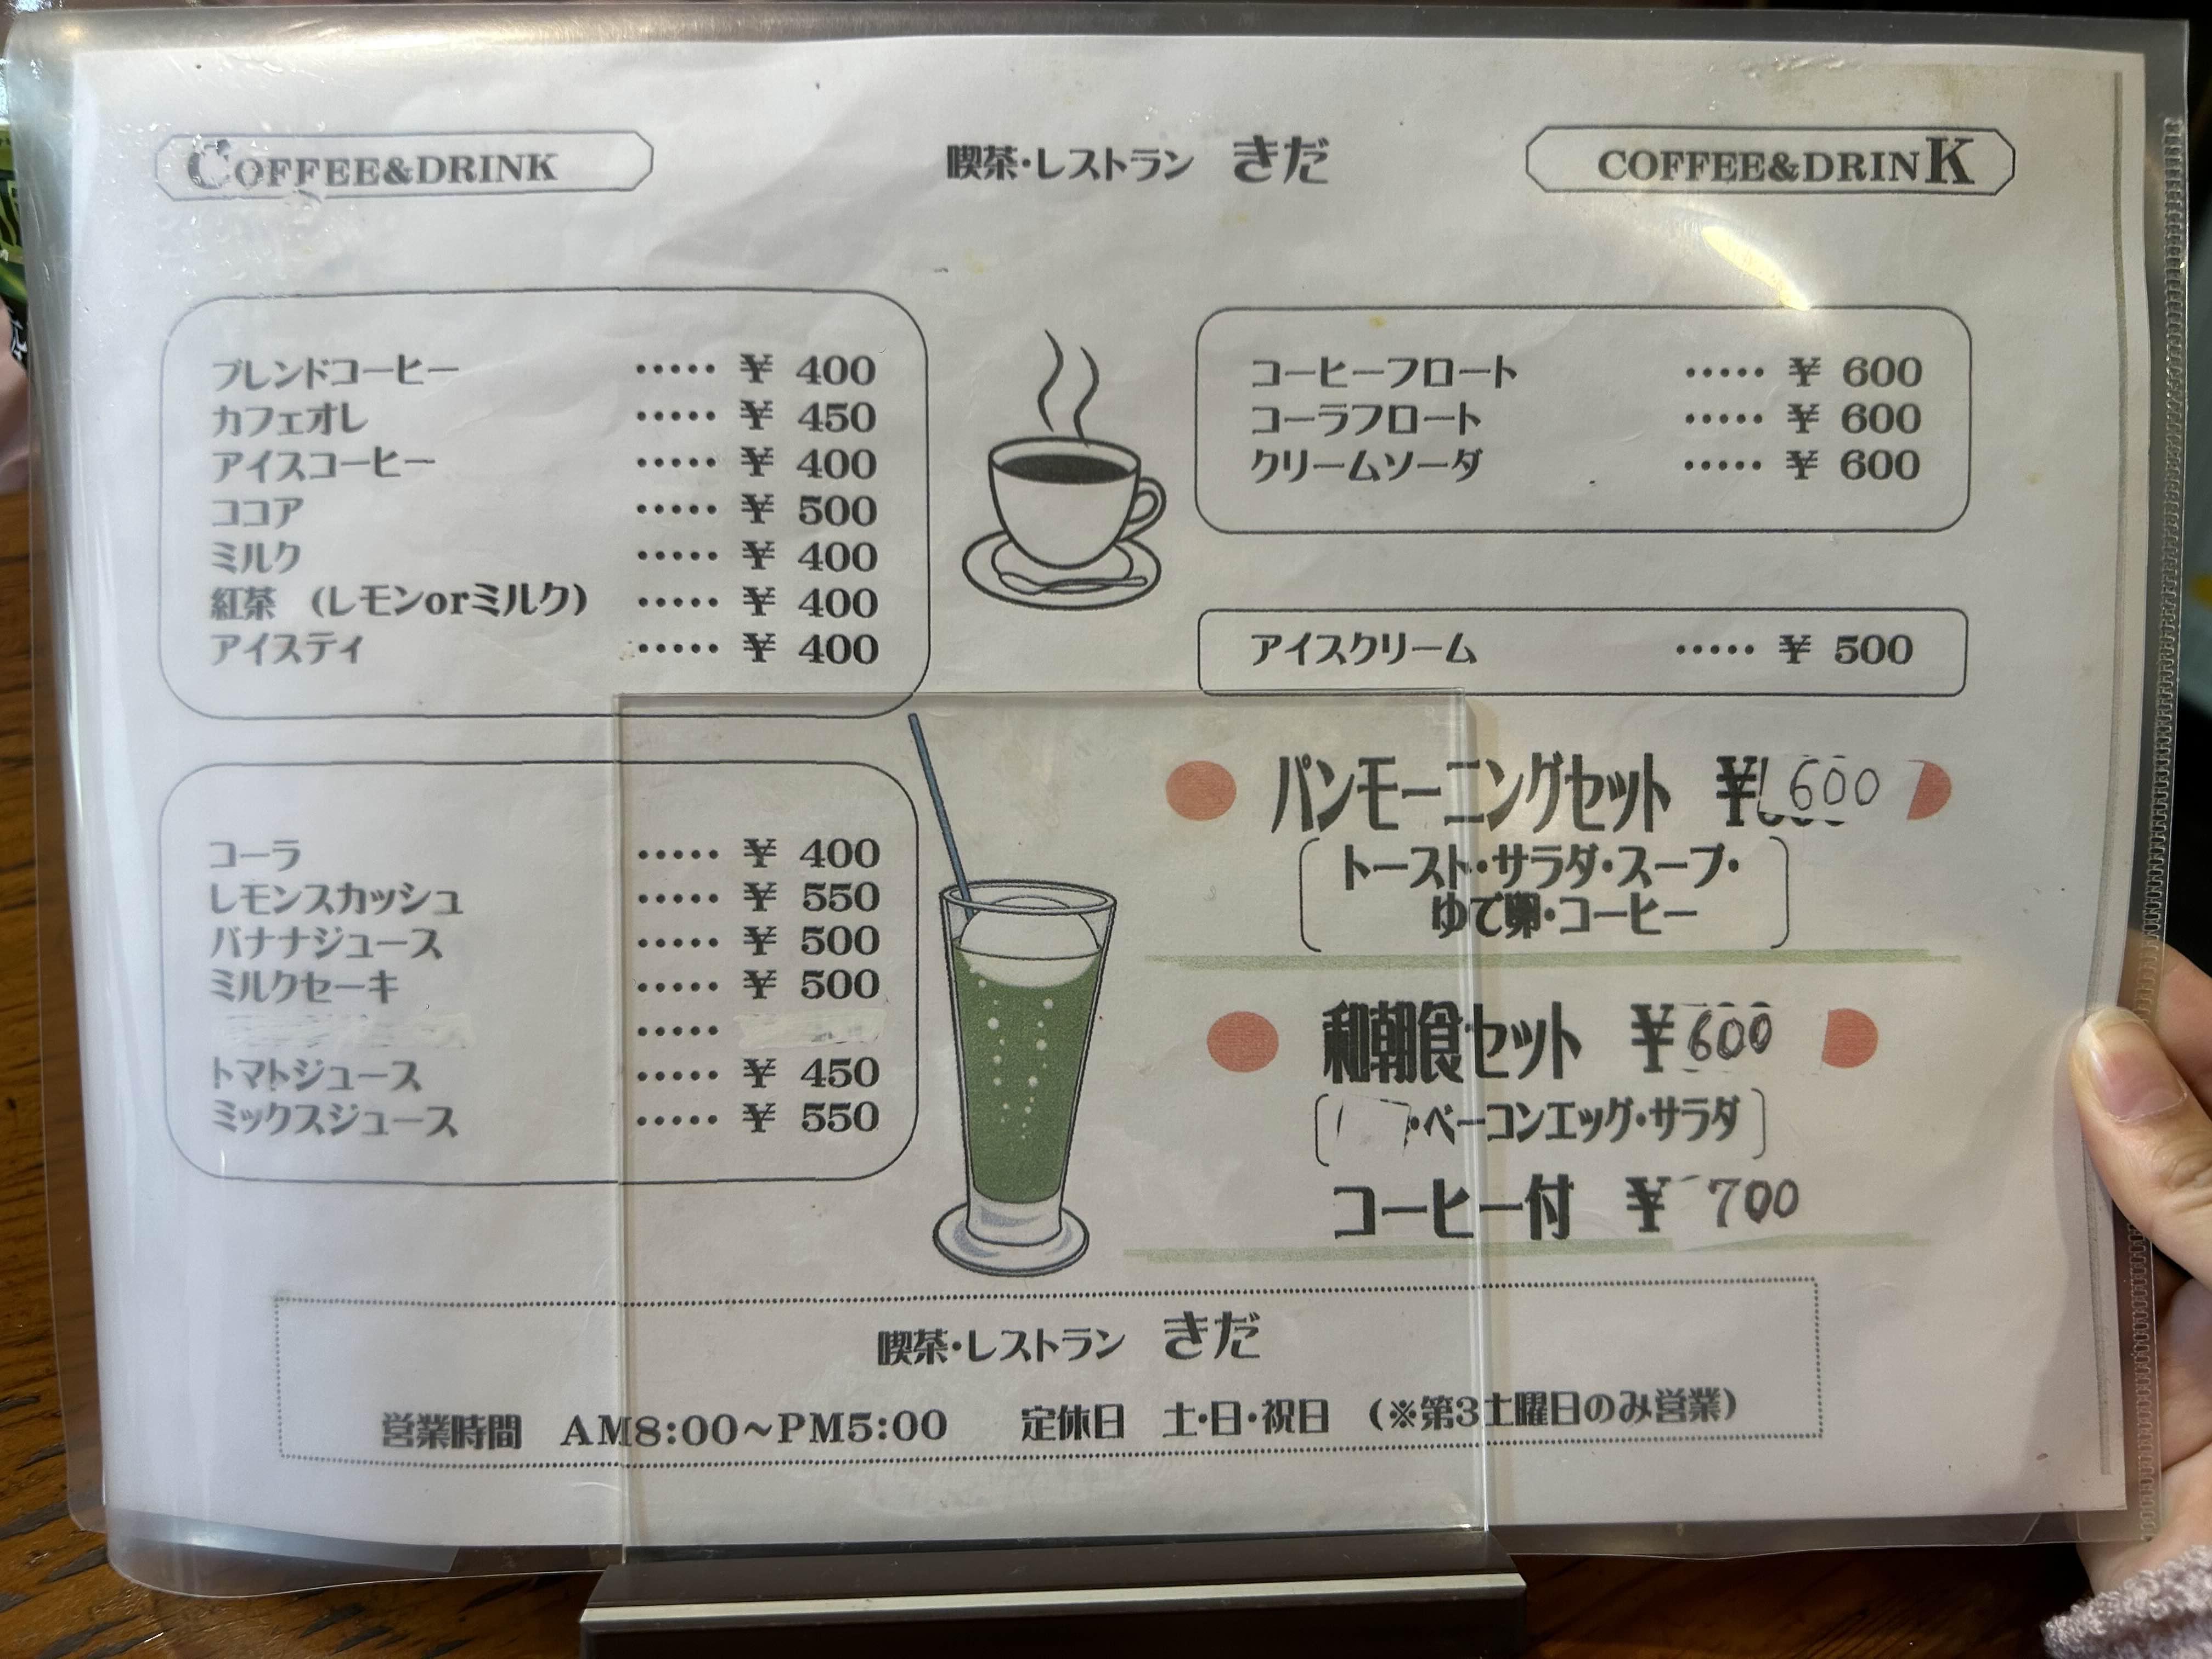 COFFEE&DRINK
喫茶・レストラン きだ
COFFEE&DRINK
ブレンドコーヒー ・・・・・ ¥ 400
カフェオレ ・・・・・ ¥ 450
アイスコーヒー ・・・・・ ¥ 400
ココア ・・・・・ ¥ 500
ミルク ・・・・・ ¥ 400
紅茶 (レモンorミルク) ・・・・・ ¥ 400
アイスティ ・・・・・ ¥ 400
コーラ ・・・・・ ¥ 400
レモンスカッシュ ・・・・・ ¥ 550
バナナジュース ・・・・・ ¥ 500
ミルクセーキ ・・・・・ ¥ 500
・・・・・
トマトジュース ・・・・・ ¥ 450
ミックスジュース ・・・・・ ¥ 550
コーヒーフロート ・・・・・ ¥ 600
コーラフロート ・・・・・ ¥ 600
クリームソーダ ・・・・・ ¥ 600
アイスクリーム ・・・・・ ¥ 500
パンモーニングセット ¥600
(トースト・サラダ・スープ・
ゆで卵・コーヒー)
和朝食セット ¥600
(・ベーコンエッグ・サラダ)
コーヒー付 ¥700
喫茶・レストラン きだ
営業時間 AM8:00~PM5:00 定休日 土・日・祝日 (※第3土曜日のみ営業)